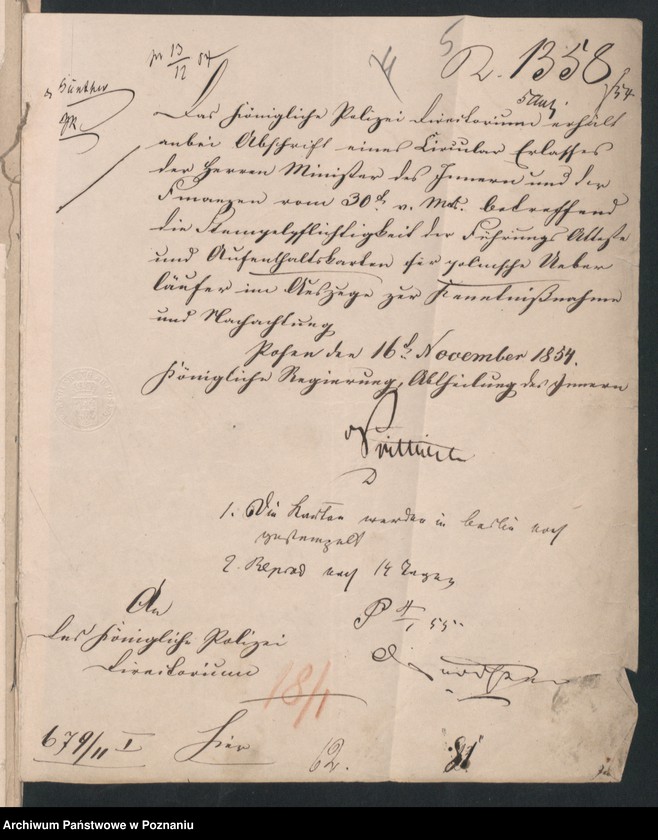 pr 13/12 54
5
R. 1358/54.
Günther
Das Königliche Polizei Directorium erhält
anbei Abschrift eines Circular Erlasses
der Herren Minister des Innern und der
Finanzen vom 30t v. Mts. betreffend
die Stempelpflichtigkeit der Führungs Atteste
und Aufenthaltskarten für polnische Ueber
läufer im Auszuge zur Kenntnißnahme
und Nachachtung
Posen den 16t November 1854.
Königliche Regierung, Abtheilung des Innern
1. Die Karten werden in Berlin noch
gestempelt
2. Reprod nach 14 Tagen
P 4/1 55
An
das Königliche Polizei
Directorium
18/1
Hier
679/11 I
62.
81
Archiwum Państwowe w Poznaniu